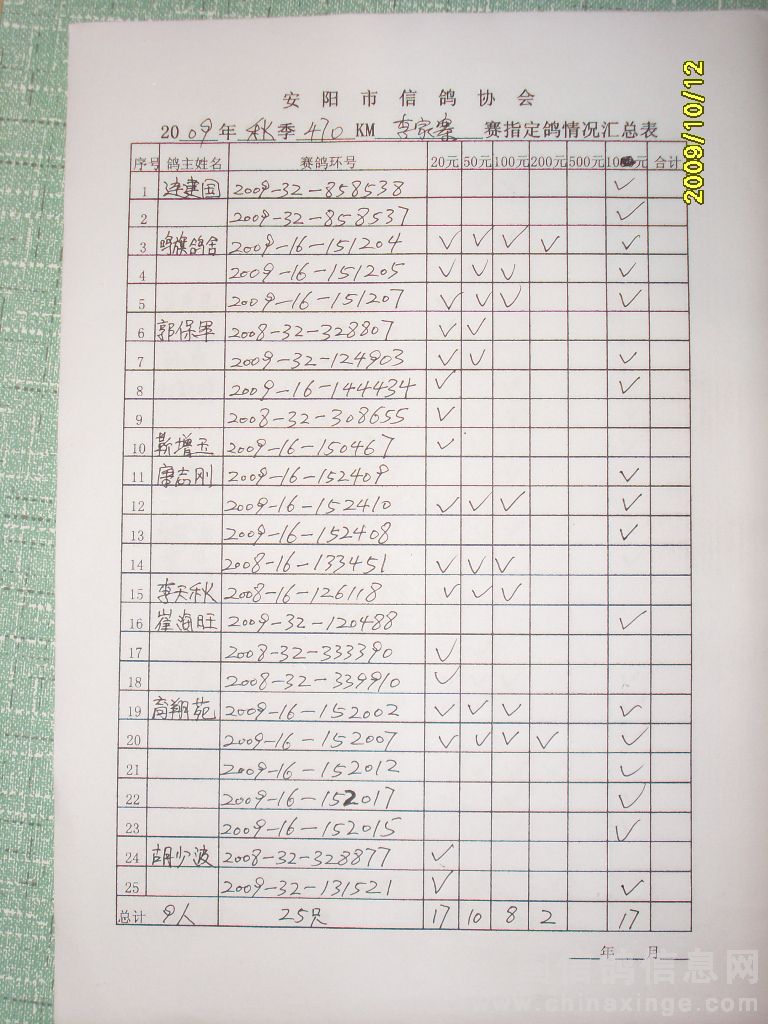 安阳市信鸽协会
2009年秋季470KM李家寨赛指定鸽情况汇总表
2009/10/12
序号 鸽主姓名 赛鸽环号 20元 50元 100元 200元 500元 10元 合计
1 连建国 2009-32-858538 ✓
2 2009-32-858537 ✓
3 鸣旗鸽舍 2009-16-151204 ✓ ✓ ✓ ✓ ✓
4 2009-16-151205 ✓ ✓ ✓ ✓
5 2009-16-151207 ✓ ✓ ✓ ✓
6 郭保军 2008-32-328807 ✓ ✓
7 2009-32-124903 ✓ ✓ ✓
8 2009-16-144434 ✓ ✓
9 2008-32-308655 ✓
10 靳增玉 2009-16-150467 ✓
11 廖志刚 2009-16-152409 ✓
12 2009-16-152410 ✓ ✓ ✓ ✓
13 2009-16-152408 ✓
14 2008-16-133451 ✓ ✓ ✓
15 李天秋 2008-16-126118 ✓ ✓ ✓
16 崔海旺 2009-32-120488 ✓
17 2008-32-333390 ✓
18 2008-32-339910 ✓
19 高翔苑 2009-16-152002 ✓ ✓ ✓ ✓
20 2009-16-152007 ✓ ✓ ✓ ✓ ✓
21 2009-16-152012 ✓
22 2009-16-152017 ✓
23 2009-16-152015 ✓
24 胡少波 2008-32-328877 ✓
25 2009-32-131521 ✓ ✓
总计 9人 25只 17 10 8 2 17
年 月
信鸽信息网
www.chinaxinge.com